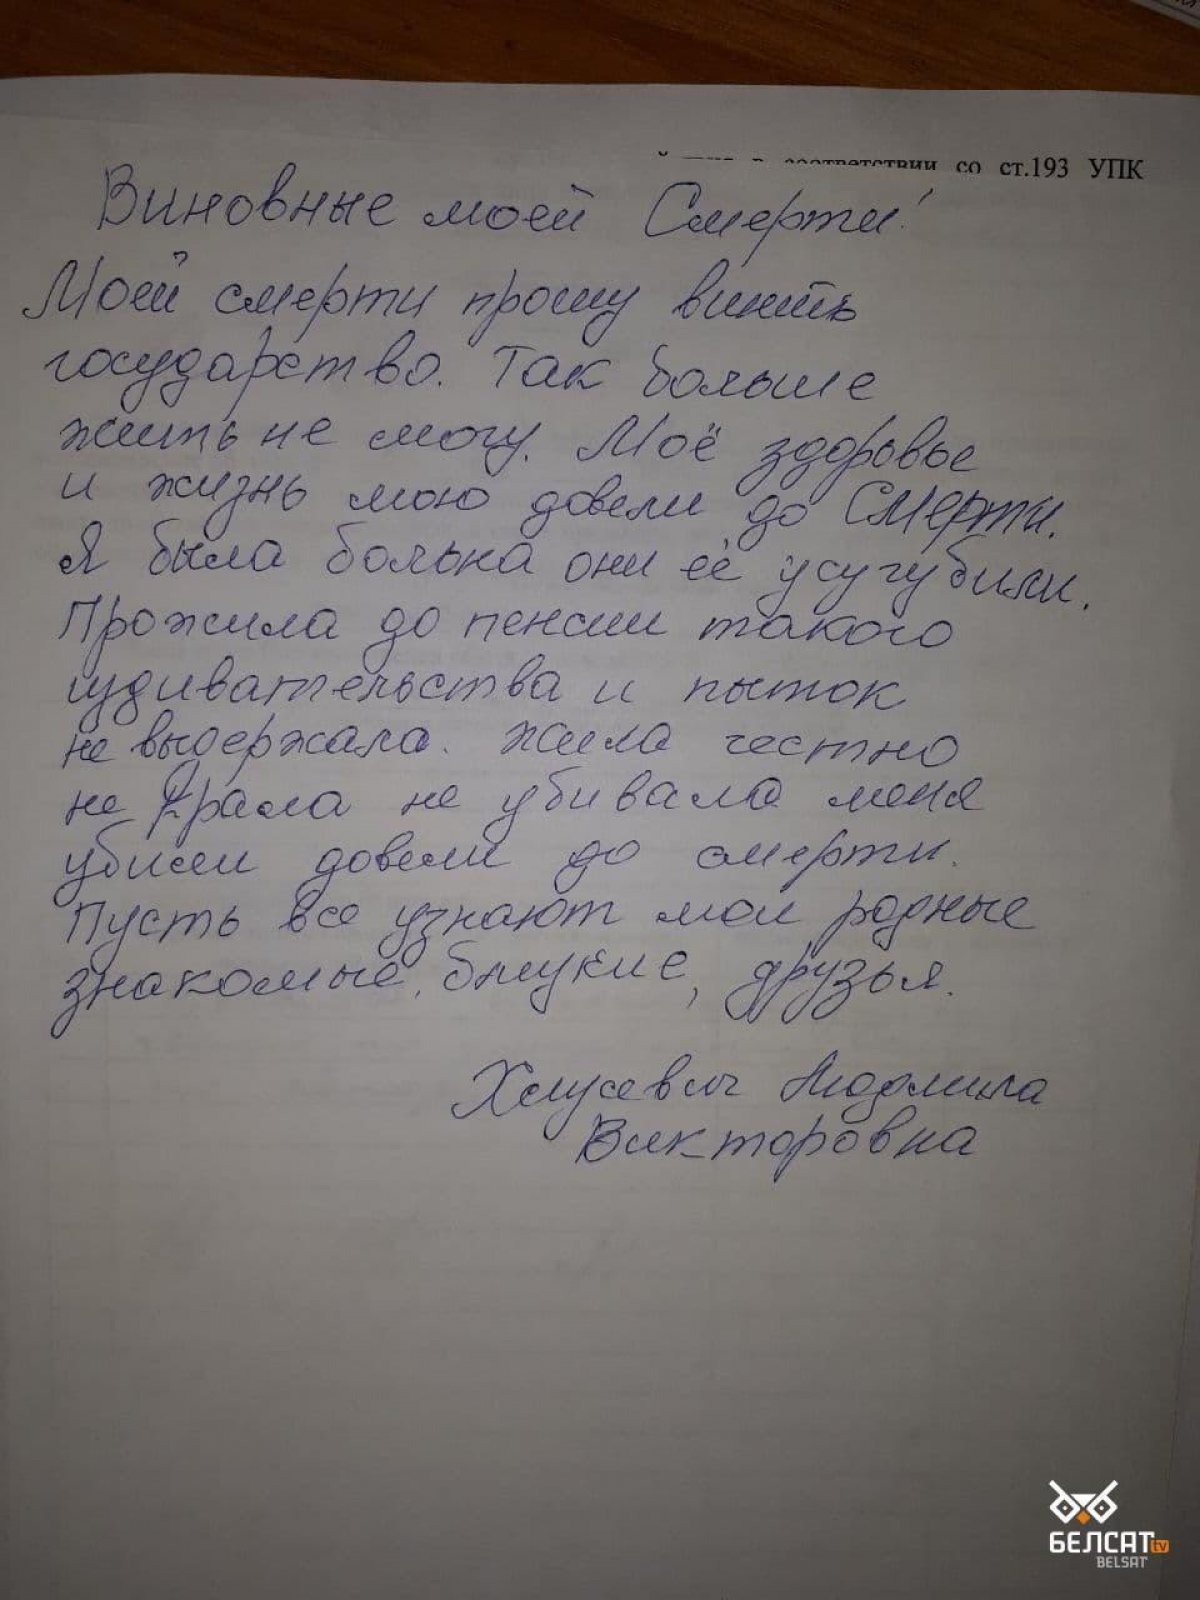 соответствии со ст.193 УПК
Виновные моей Смерти!
Моей смерти прошу винить
государство. Так больше
жить не могу. Моё здоровье
и жизнь мою довели до Смерти.
Я была больна они её усугубили.
Прожила до пенсии такого
издивательства и пыток
не выдержала. Жила честно
не крала не убивала меня
убили довели до смерти.
Пусть все узнают мои родные
знакомые, близкие, друзья.
Хлусевич Людмила
Викторовна
БЕЛСАТ tv
BELSAT